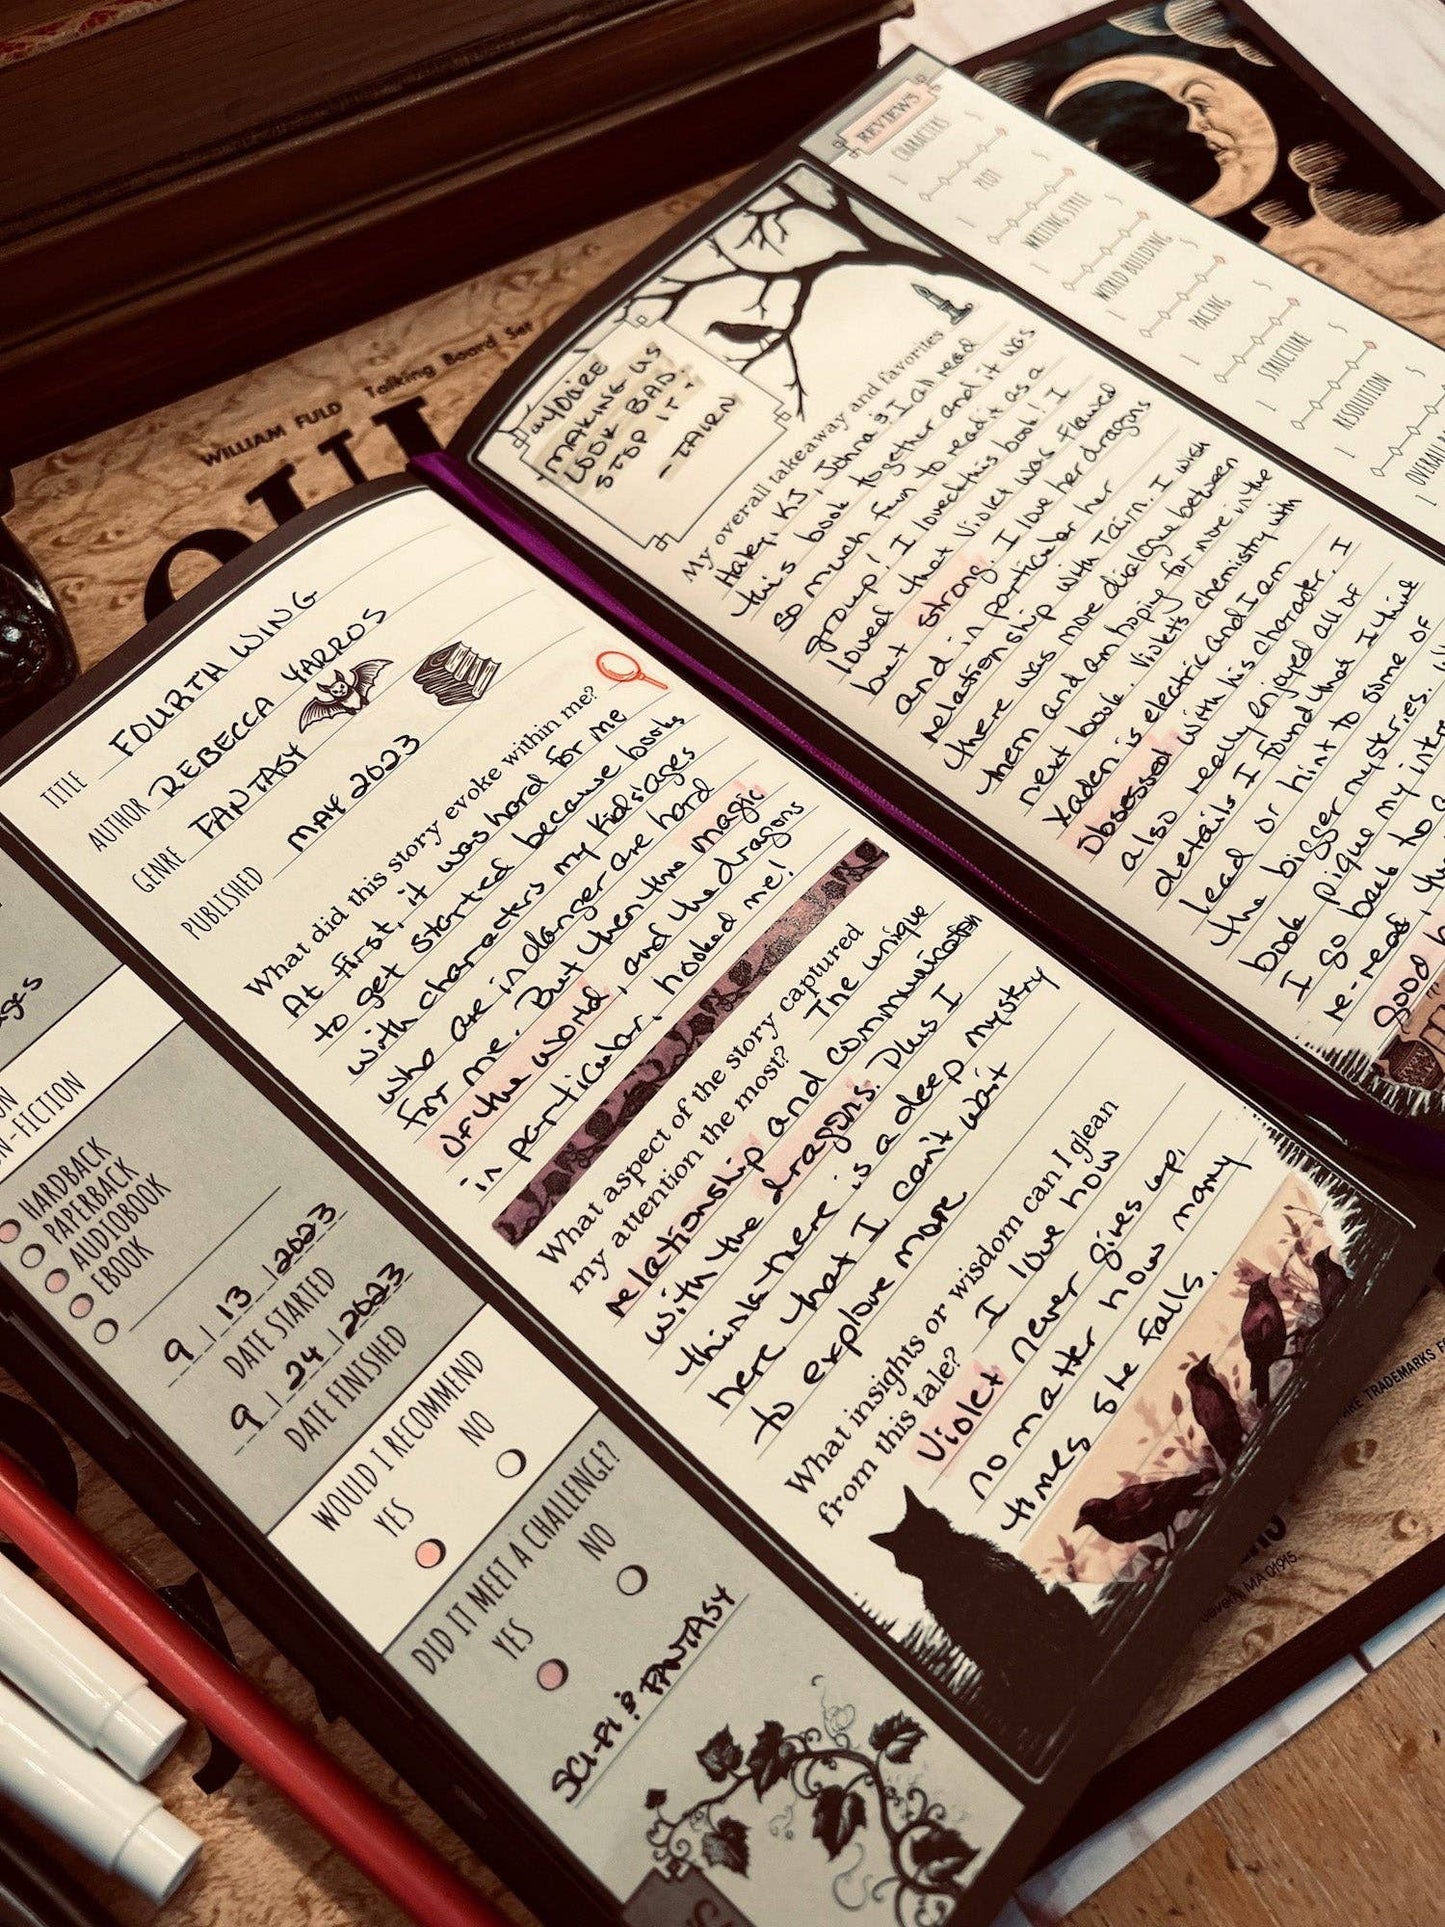 WILLIAM FULD Talking Board Set
OUI
TITLE FOURTH WING
AUTHOR REBECCA YARROS
GENRE FANTASY
PUBLISHED MAY 2023
What did this story evoke within me?
At first, it was hard for me
to get started because books
with characters my kids' ages
who are in danger are hard
for me. But then the magic
of the world, and the dragons
in particular, hooked me!
What aspect of the story captured
my attention the most? The unique
relationship and communication
with the dragons. Plus I
think there is a deep mystery
here that I can't wait
to explore more
What insights or wisdom can I glean
from this tale? I love how
Violet never gives up,
no matter how many
times she falls.
ages
N-FICTION
HARDBACK
PAPERBACK
AUDIOBOOK
EBOOK
9 | 13 | 2023
DATE STARTED
9 | 24 | 2023
DATE FINISHED
WOULD I RECOMMEND
YES NO
DID IT MEET A CHALLENGE?
YES NO
SCI-FI & FANTASY
"YOU'RE
MAKING US
LOOK BAD.
STOP IT."
- TAIRN
My overall takeaway and favorites
Haley, KJ, Jonna & I all read
this book together and it was
so much fun to read it as a
group! I loved this book! I
loved that Violet was flawed
but strong. I love her dragons
and in particular her
relationship with Tairn. I wish
there was more dialogue between
them and am hoping for more in the
next book. Violet's chemistry with
Xaden is electric and I am
Obsessed with his character. I
also really enjoyed all of
details I found that I think
lead or hint to some of
the bigger mysteries.
book pique my inter
I go back to a
re-read,
good
REVIEWS
CHARACTERS
1 5
PLOT
1 5
WRITING STYLE
1 5
WORLD BUILDING
1 5
PACING
1 5
STRUCTURE
1 5
RESOLUTION
1
OVERALL
TRADEMARKS
MA 01915